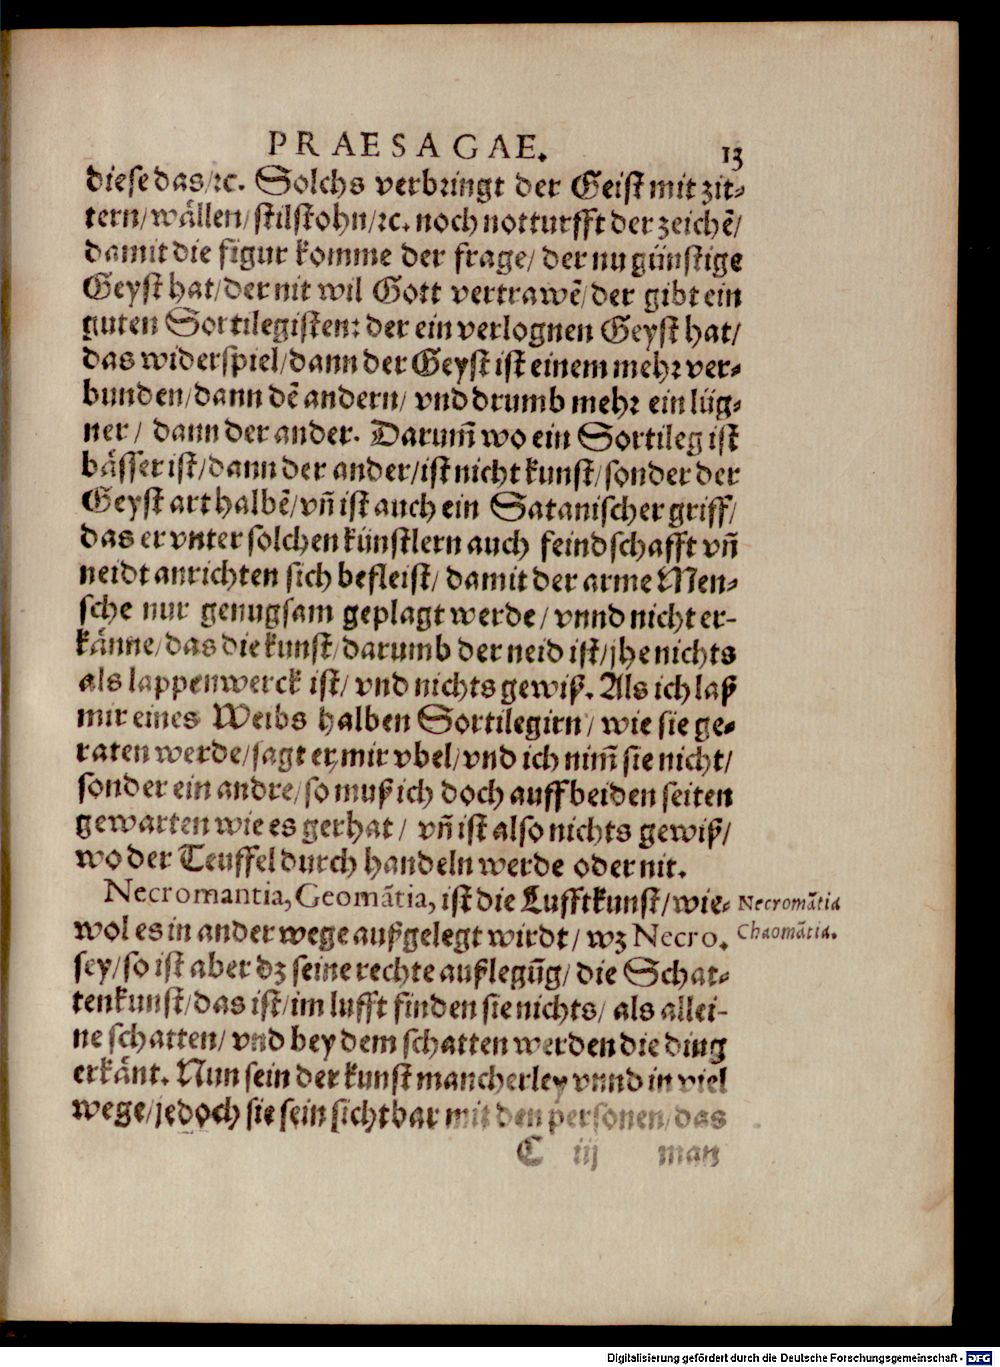 PRAESAGAE. 13
diese das/ꝛc. Solchs verbringt der Geist mit zit-
tern/wällen/stilstohn/ꝛc. noch notturfft der zeichẽ/
damit die figur komme der frage/ der nu günstige
Geyst hat/der nit wil Gott vertrawẽ/der gibt ein
guten Sortilegisten: der ein verlognen Geyst hat/
das widerspiel/dann der Geyst ist einem mehr ver-
bunden/dann dẽ andern/ vnd drumb mehr ein lüg-
ner/ dann der ander. Darum̃ wo ein Sortileg ist
bässer ist/dann der ander/ist nicht kunst/sonder der
Geyst art halbẽ/vñ ist auch ein Satanischer griff/
das er vnter solchen künstlern auch feindschafft vñ
neidt anrichten sich befleist/ damit der arme Men-
sche nur genugsam geplagt werde/ vnnd nicht er-
känne/das die kunst/darumb der neid ist/jhe nichts
als lappenwerck ist/ vnd nichts gewiß. Als ich laß
mir eines Weibs halben Sortilegirn/ wie sie ge-
raten werde/sagt er mir vbel/vnd ich nim̃ sie nicht/
sonder ein andre/so muß ich doch auff beiden seiten
gewarten wie es gerhat/ vñ ist also nichts gewiß/
wo der Teuffel durch handeln werde oder nit.
Necromantia, Geomãtia, ist die Lufftkunst/wie- Necromãtia
wol es in ander wege außgelegt wirdt/ wz Necro. Chaomãtia.
sey/so ist aber dz seine rechte außlegũg/ die Schat-
tenkunst/das ist/im lufft finden sie nichts/ als allei-
ne schatten/ vnd bey dem schatten werden die ding
erkänt. Nun sein der kunst mancherley vnnd in viel
wege/jedoch sie sein sichtbar mit den personen/das
C iij man
Digitalisierung gefördert durch die Deutsche Forschungsgemeinschaft - DFG